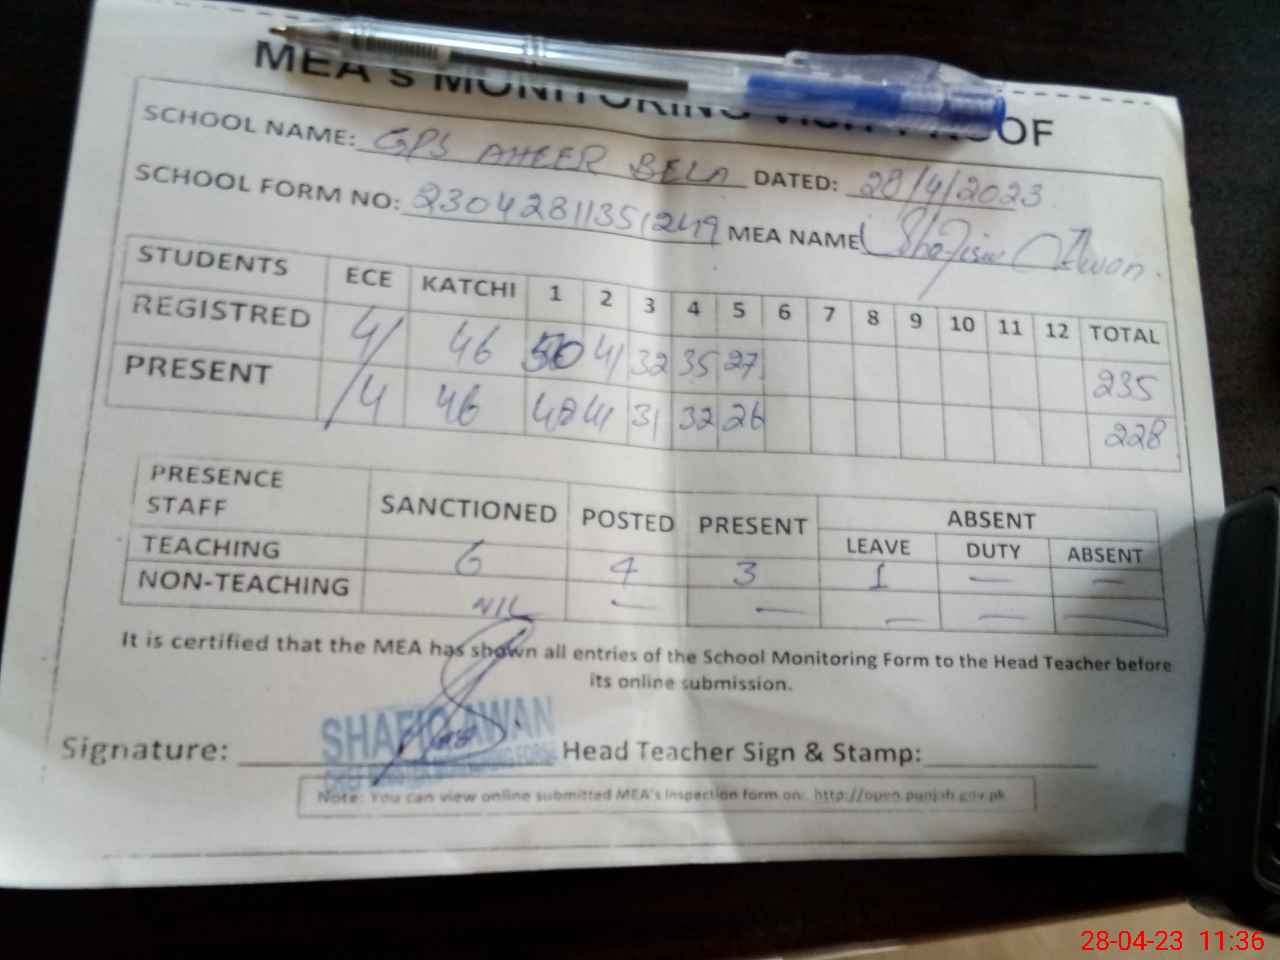 MEA's MONITORING VISIT PROOF
SCHOOL NAME: GPS AHEER BELA DATED: 28/4/2023
SCHOOL FORM NO: 23042811351249 MEA NAME Awan
STUDENTS ECE KATCHI 1 2 3 4 5 6 7 8 9 10 11 12 TOTAL
REGISTRED 4 46 50 41 32 35 27 235
PRESENT 4 46 48 41 31 32 26 228
PRESENCE STAFF SANCTIONED POSTED PRESENT ABSENT
LEAVE DUTY ABSENT
TEACHING 6 4 3 1 — —
NON-TEACHING NIL — — — — —
It is certified that the MEA has shown all entries of the School Monitoring Form to the Head Teacher before
its online submission.
SHAFIQ AWAN
Signature: Head Teacher Sign & Stamp:
Note: You can view online submitted MEA's Inspection form on: http://open.punjab.gov.pk
28-04-23 11:36